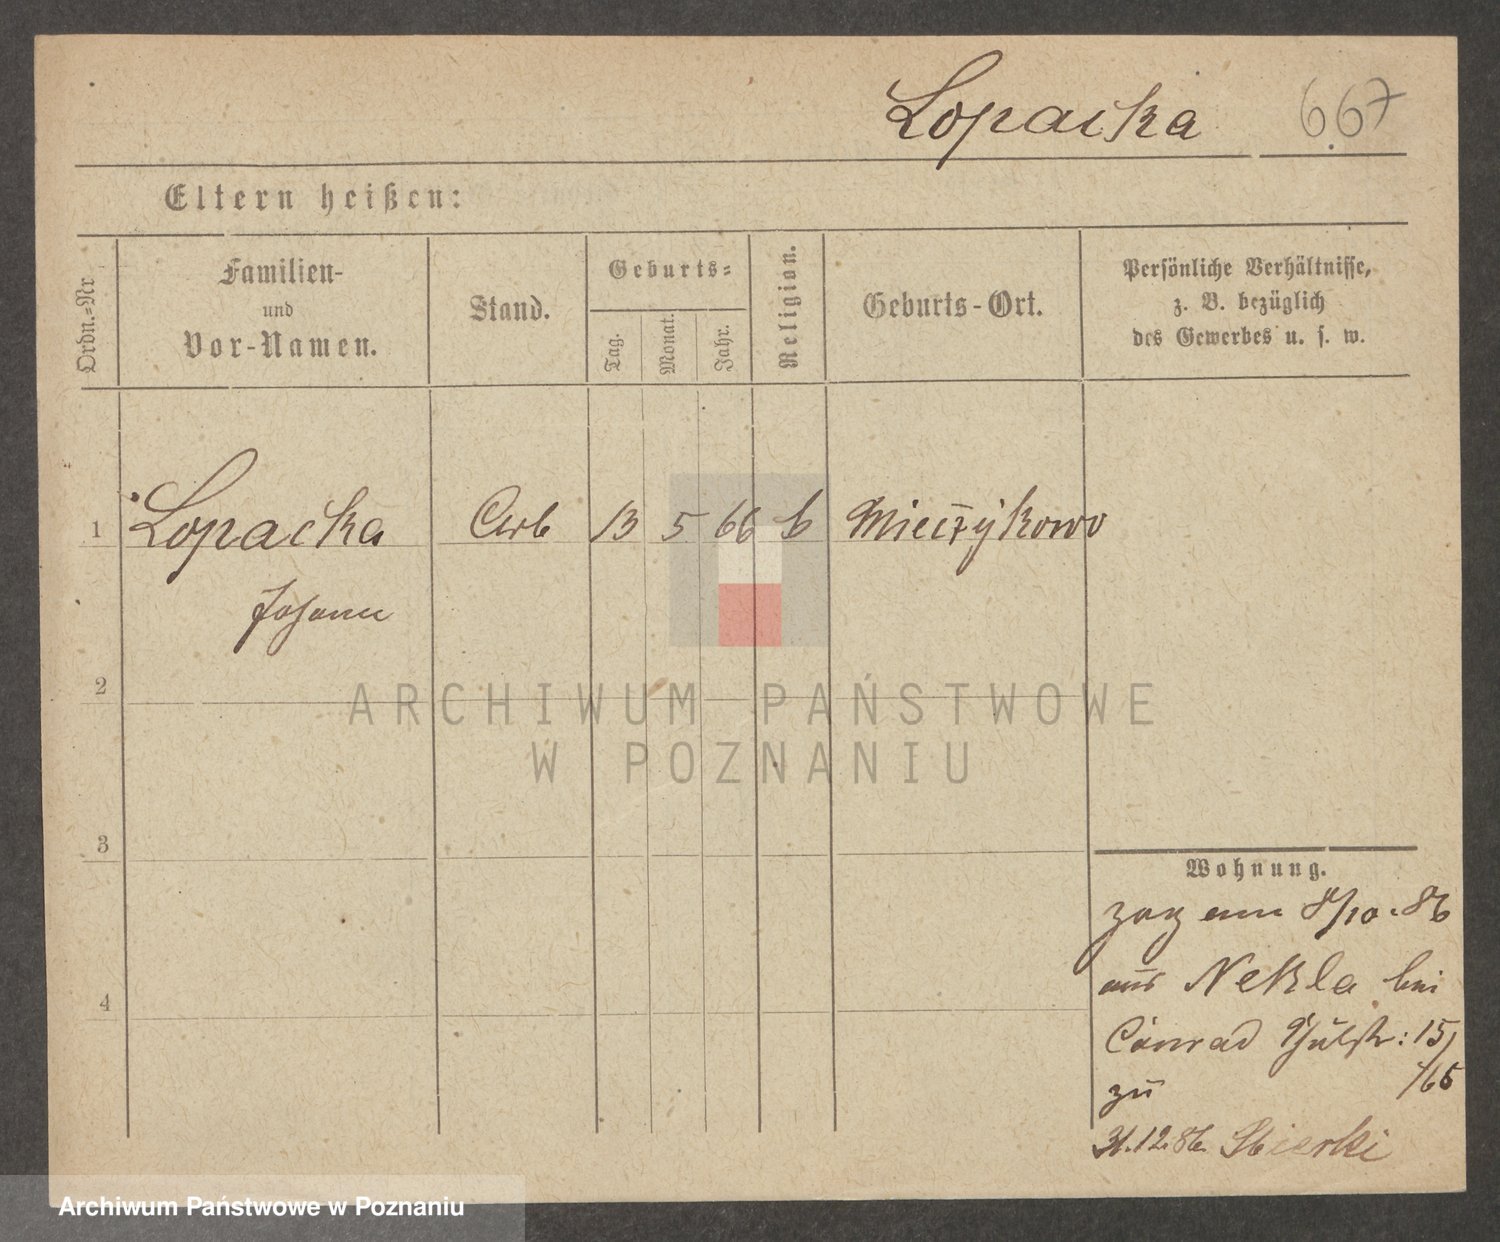 Lopacka 667
Eltern heißen:
Ordn.-Nr
Familien-
und
Vor-Namen.
Stand.
Geburts-
Tag.
Monat.
Jahr.
Religion.
Geburts-Ort.
Persönliche Verhältnisse,
z. B. bezüglich
des Gewerbes u. s. w.
1 Lopacka Arb 13 5 66 k Mieczÿkowo
Johann
2
3
4
ARCHIWUM PAŃSTWOWE
W POZNANIU
Wohnung.
zog am 8/10.86
aus Nekla bei
Conrad Schulstr: 15/
zu /65
31.12.86.
Archiwum Państwowe w Poznaniu